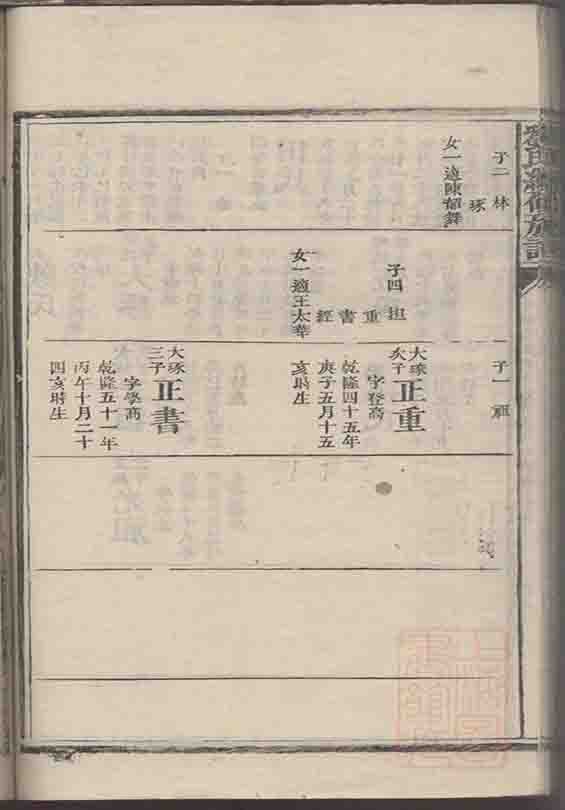 子二林
琢
女一適陳郁舞
子四担
重
書
經
女一適王太華
子一祖
大琢次子
正重
字登高
乾隆四十五年
庚子五月十五
亥時生
大琢三子
正書
字學高
乾隆五十一年
丙午十月二十
四亥時生